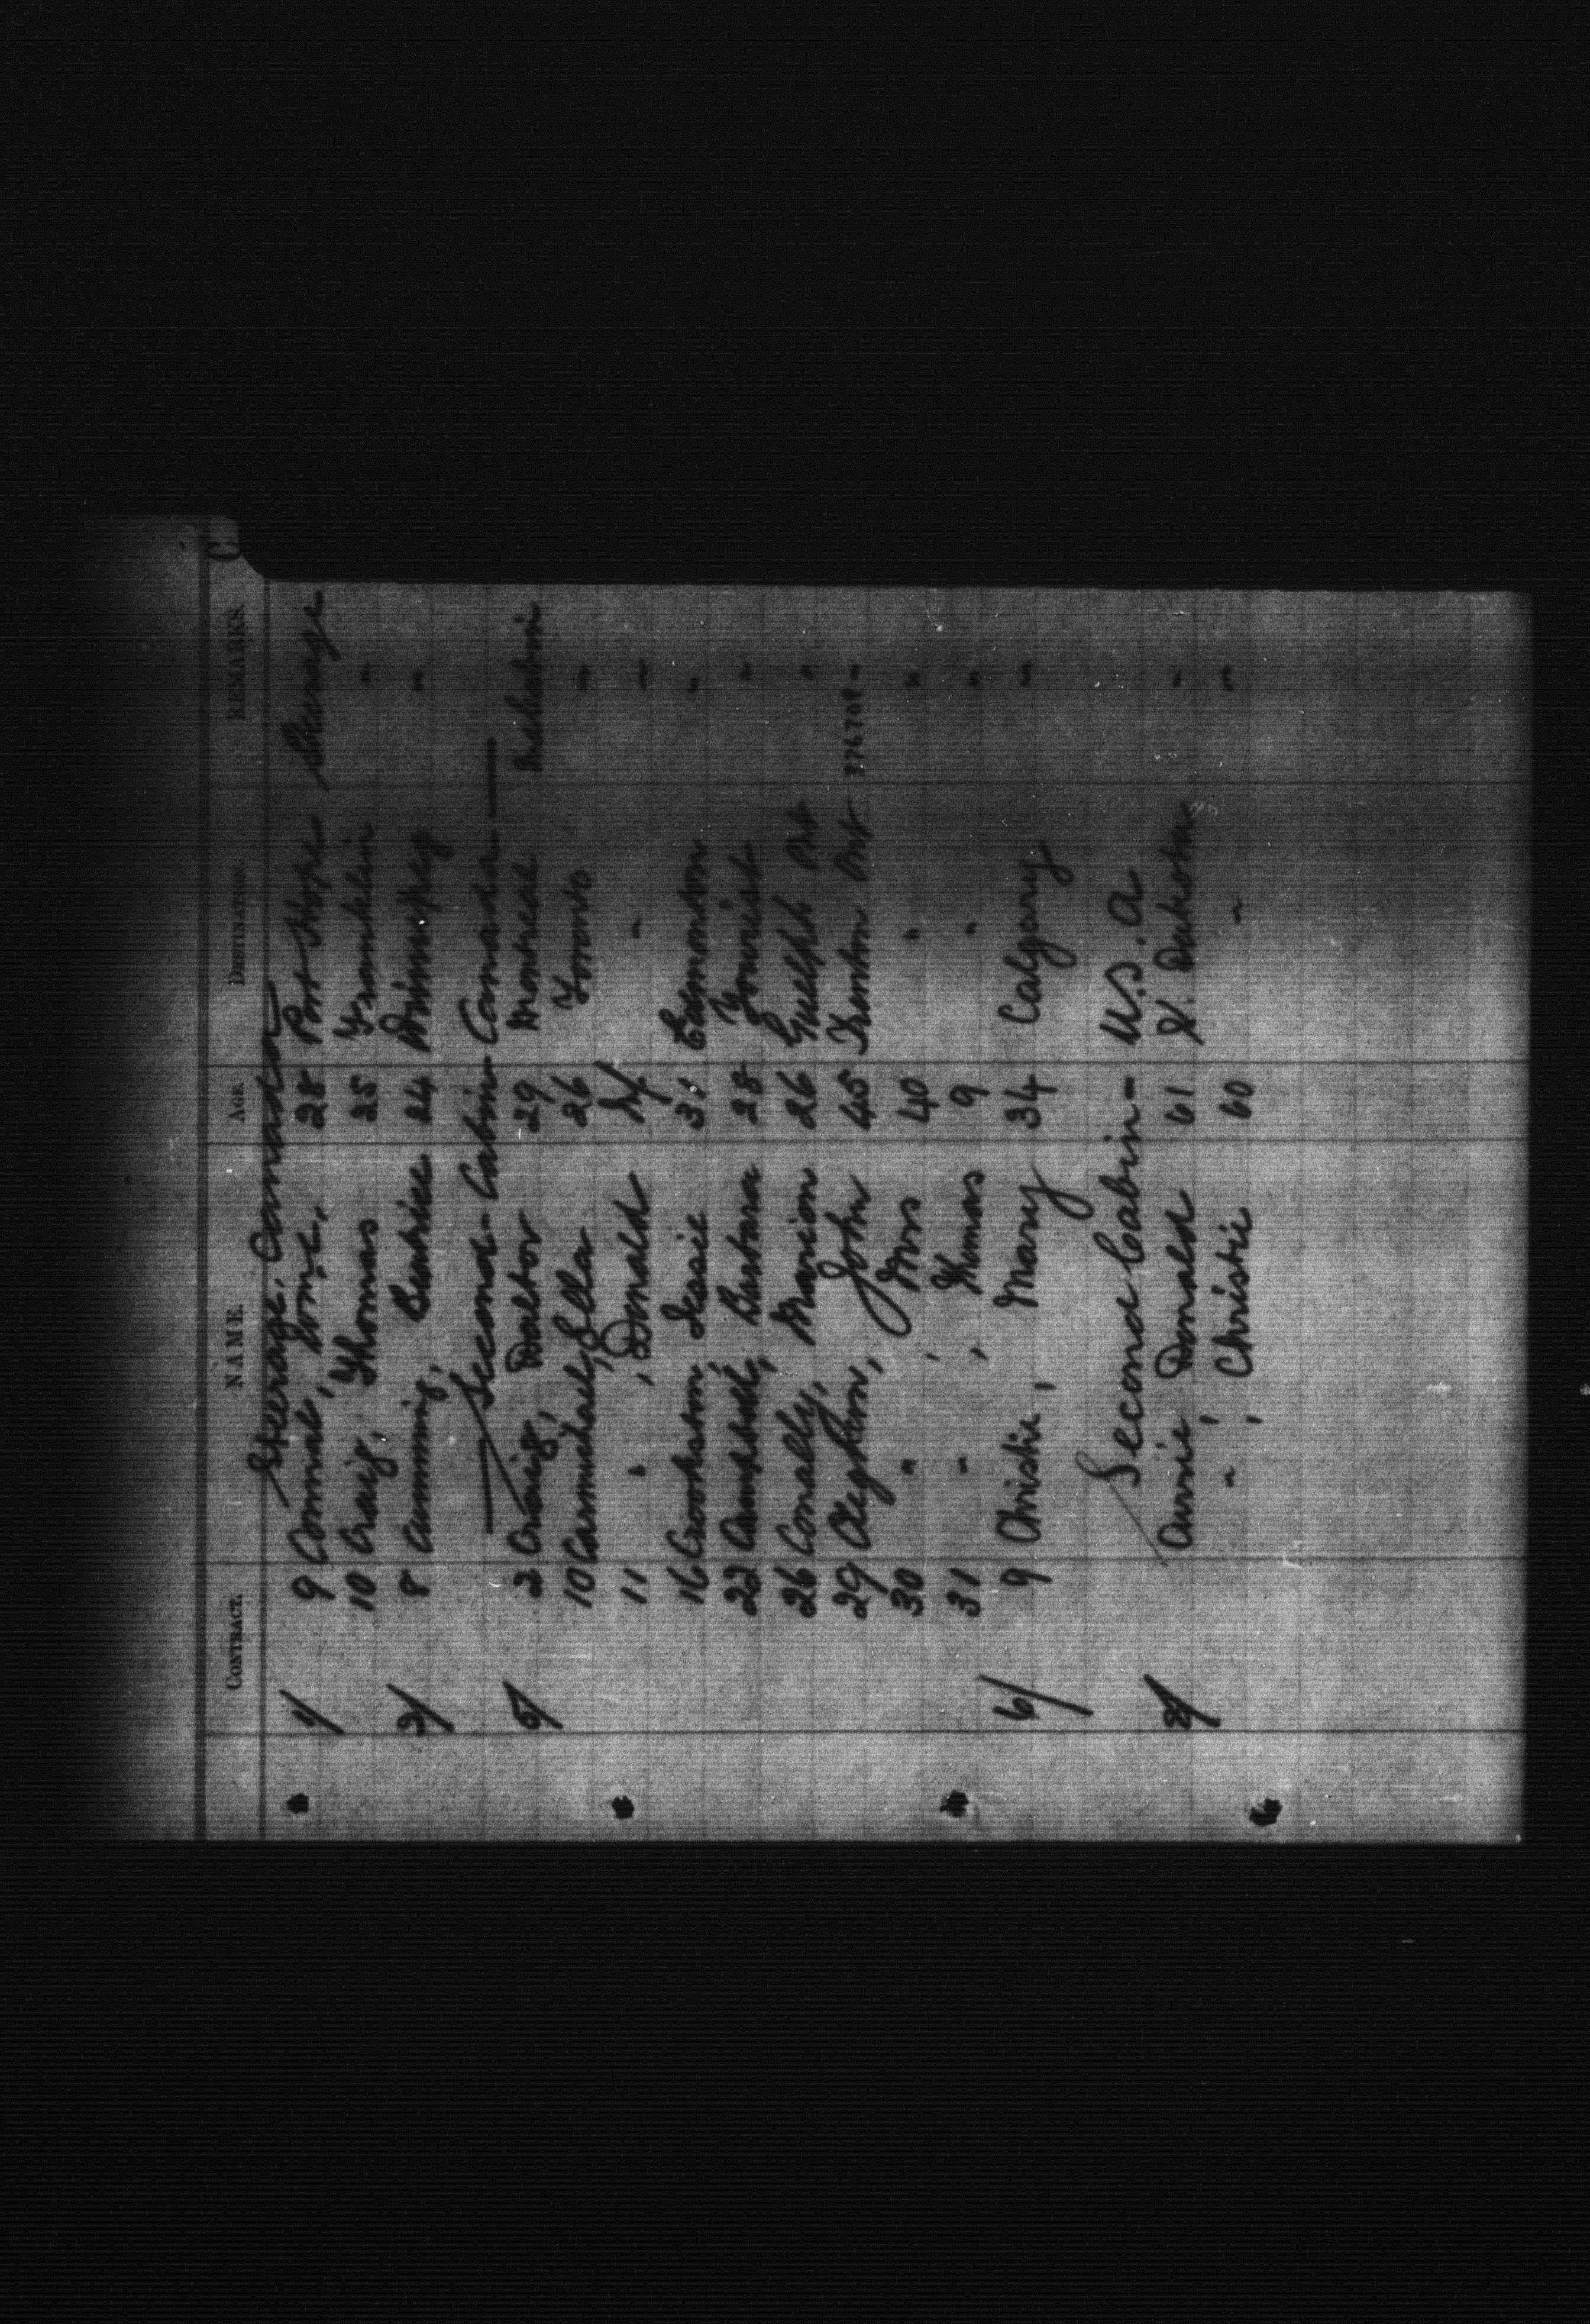 C
CONTRACT. NAME. AGE. DESTINATION. REMARKS.
Steerage. Canada
1/ 9 Connal, 28 Port Hope Steerage
10 Craig, Thomas 25 Franklin "
3/ 8 Cumming, Beatrice 24 Winnipeg "
Second-Cabin-Canada-
5/ 2 Craig, Walter 29 Montreal 2nd Cabin
10 Carmichael, Ella 26 Toronto "
11 " , Donald Inf " "
16 Crookston Jessie 31 Edmonton "
22 Campbell, Barbara 28 Tourist "
26 Conally, Marion 26 Guelph Ont "
29 Cleghorn, John 45 Trenton Ont 376708 "
30 " , Mrs 40 " "
31 " , Thomas 9 " "
6/ 9 Christie, Mary 34 Calgary "
Second Cabin- U.S.A
2/ Currie, Donald 61 S. Dakota "
" , Christie 60 " "